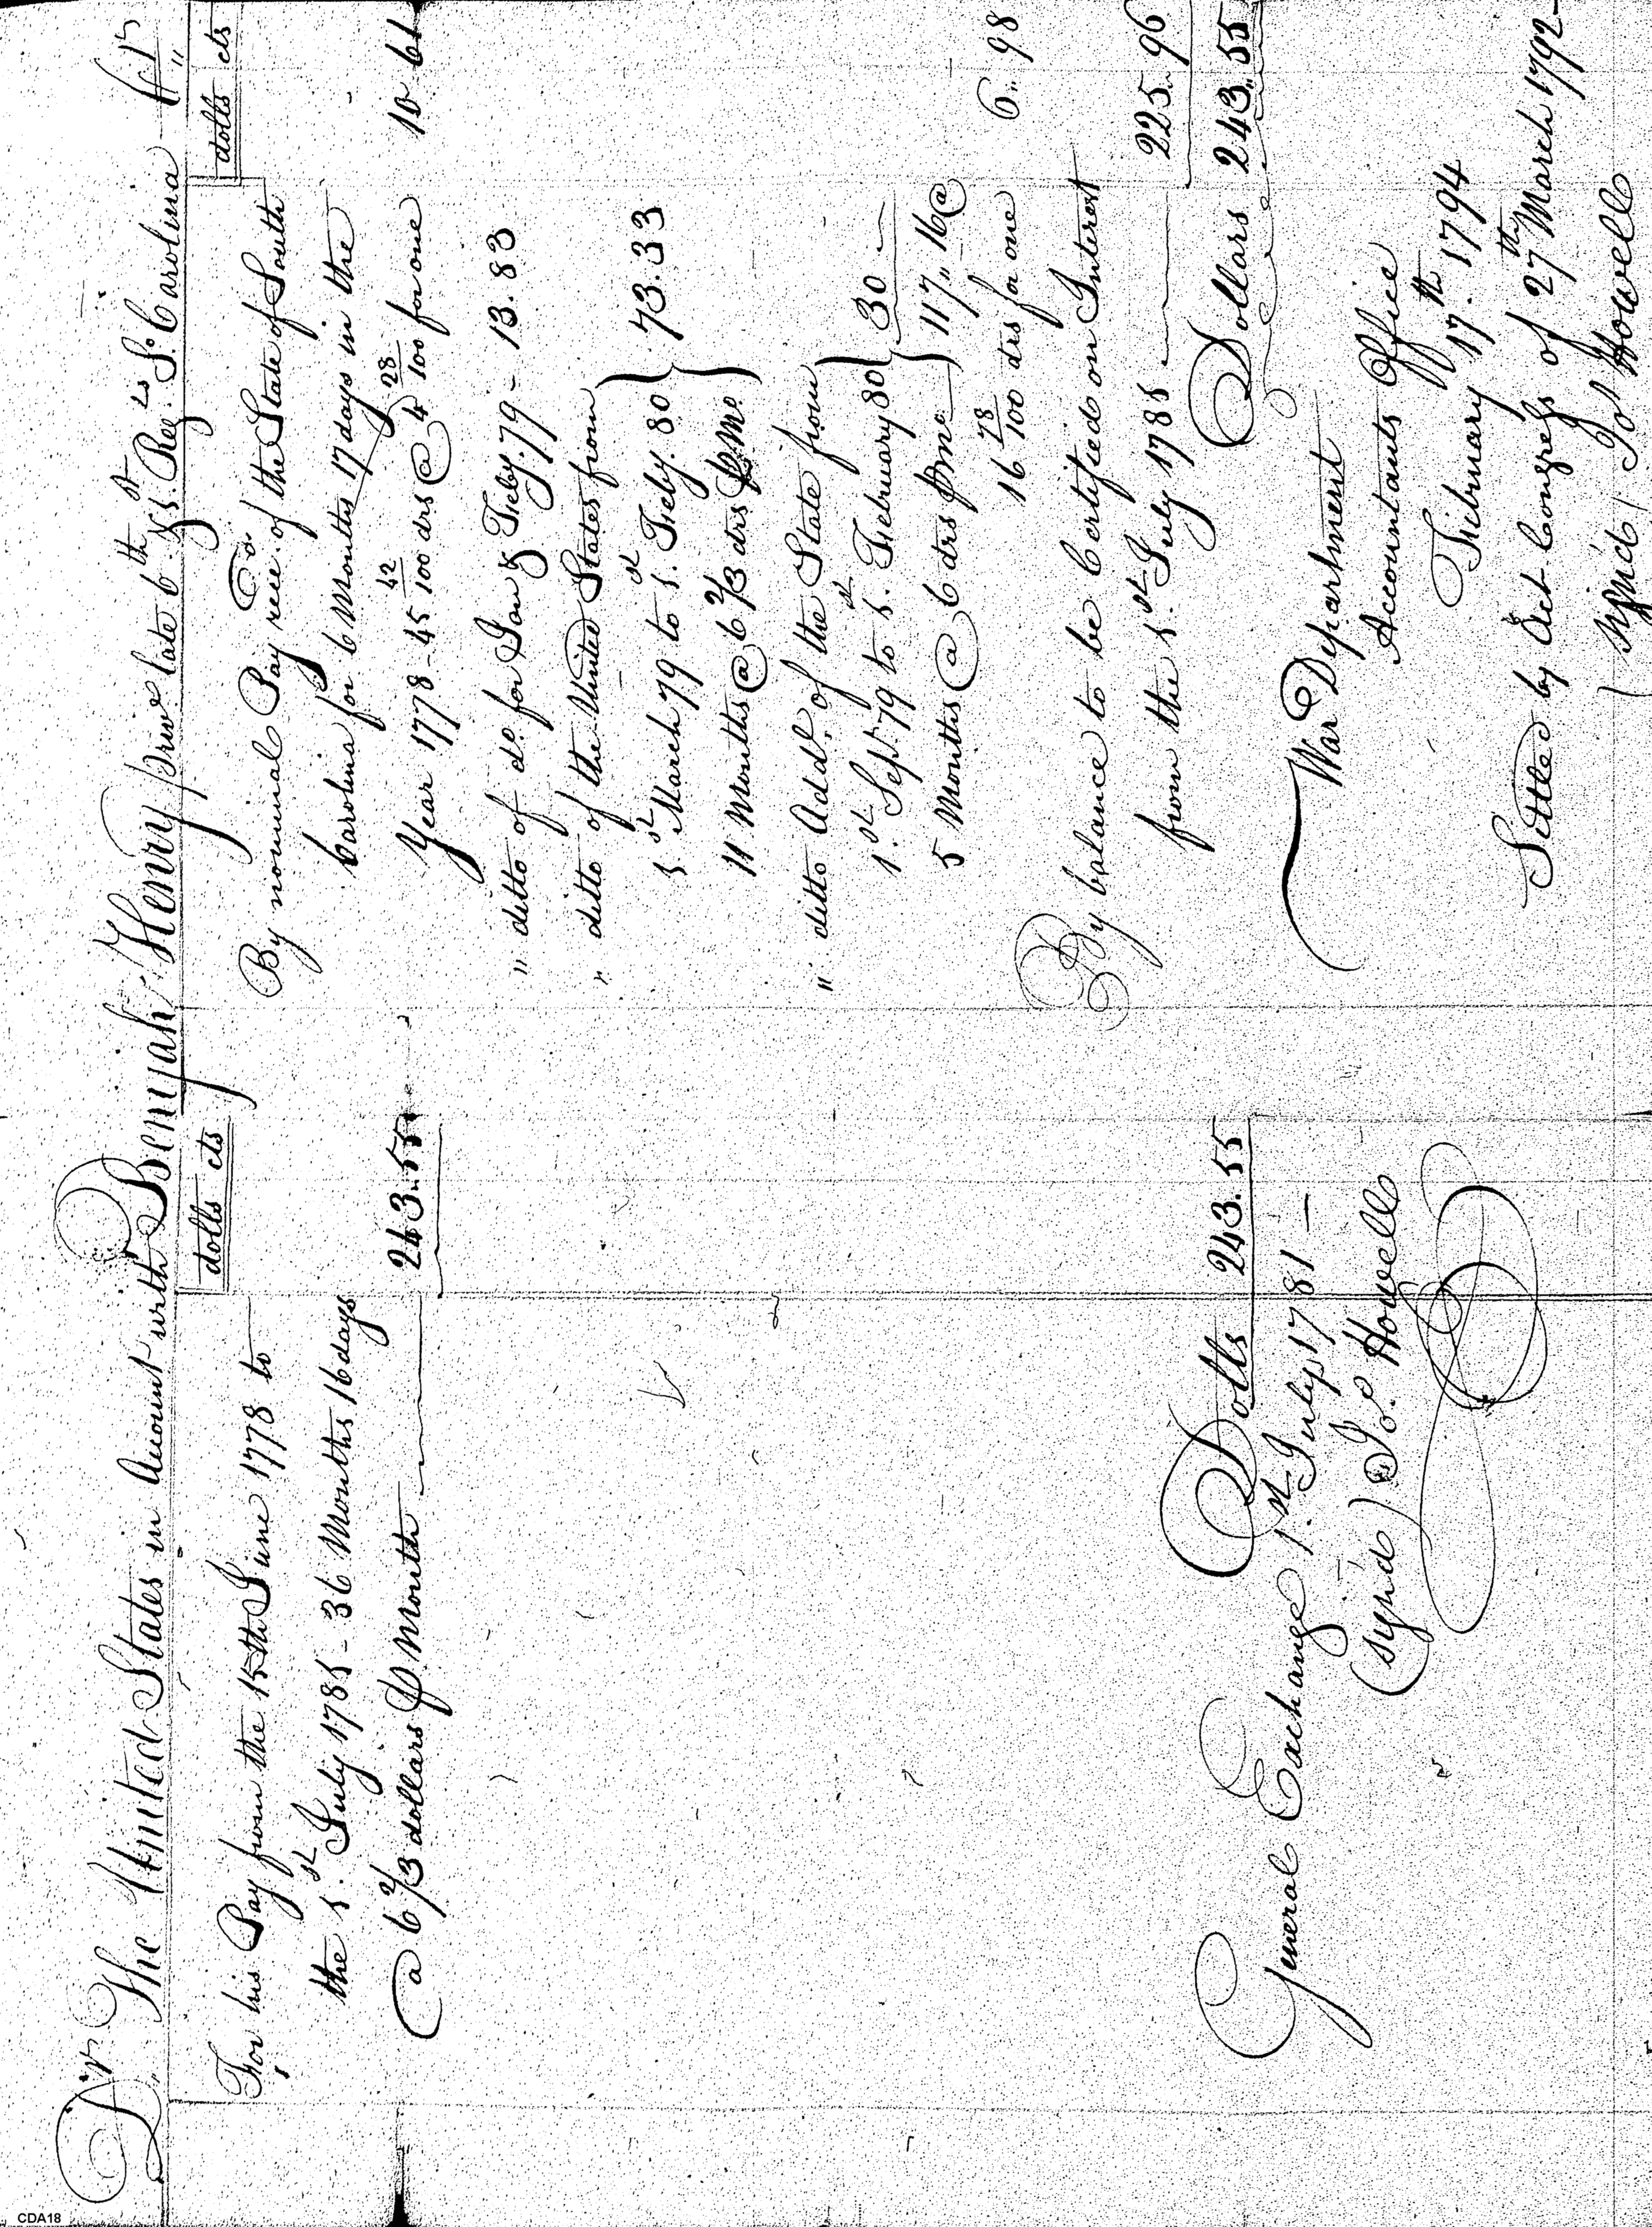 Dr. The United States in Account with Benijah Henry priv.e late 6th & 1st Reg.ts So. Carolina Cr
dolls cts
For his Pay from the 15th June 1778 to
the 1st July 1781 - 36 Months 16 days
@ 6 2/3 dollars P Month 243..55
Dolls 243.55
General Exchange 1.st July 1781 —
(sign'd) Jo.s Howell
dolls cts
By nominal Pay rece.d of the State of South
Carolina for 6 Months 17 days in the
Year 1778 - 45 42/100 drs @ 4 28/100 for one 10 61
" ditto of do. for Jan.y & Feby. 79 - 13.83
" ditto of the United States from
1st March 79 to 1.st Feby. 80 } 73.33
11 Months @ 6 2/3 drs P Mo.
" ditto Add.l of the State from
1.st Sept 79 to 1.st February 80 } 30 —
5 Months @ 6 drs P Mo. } 117,, 16 @
16 78/100 drs for one 6,, 98
By balance to be Certified on Interest
from the 1st July 1781 — 225..96
Dollars 243,,55
War Department
Accountants Office
February 17.th 1794
Settled by Act Congress of 27th March 1792 -
(sign'd) Jo.s Howell
CDA18